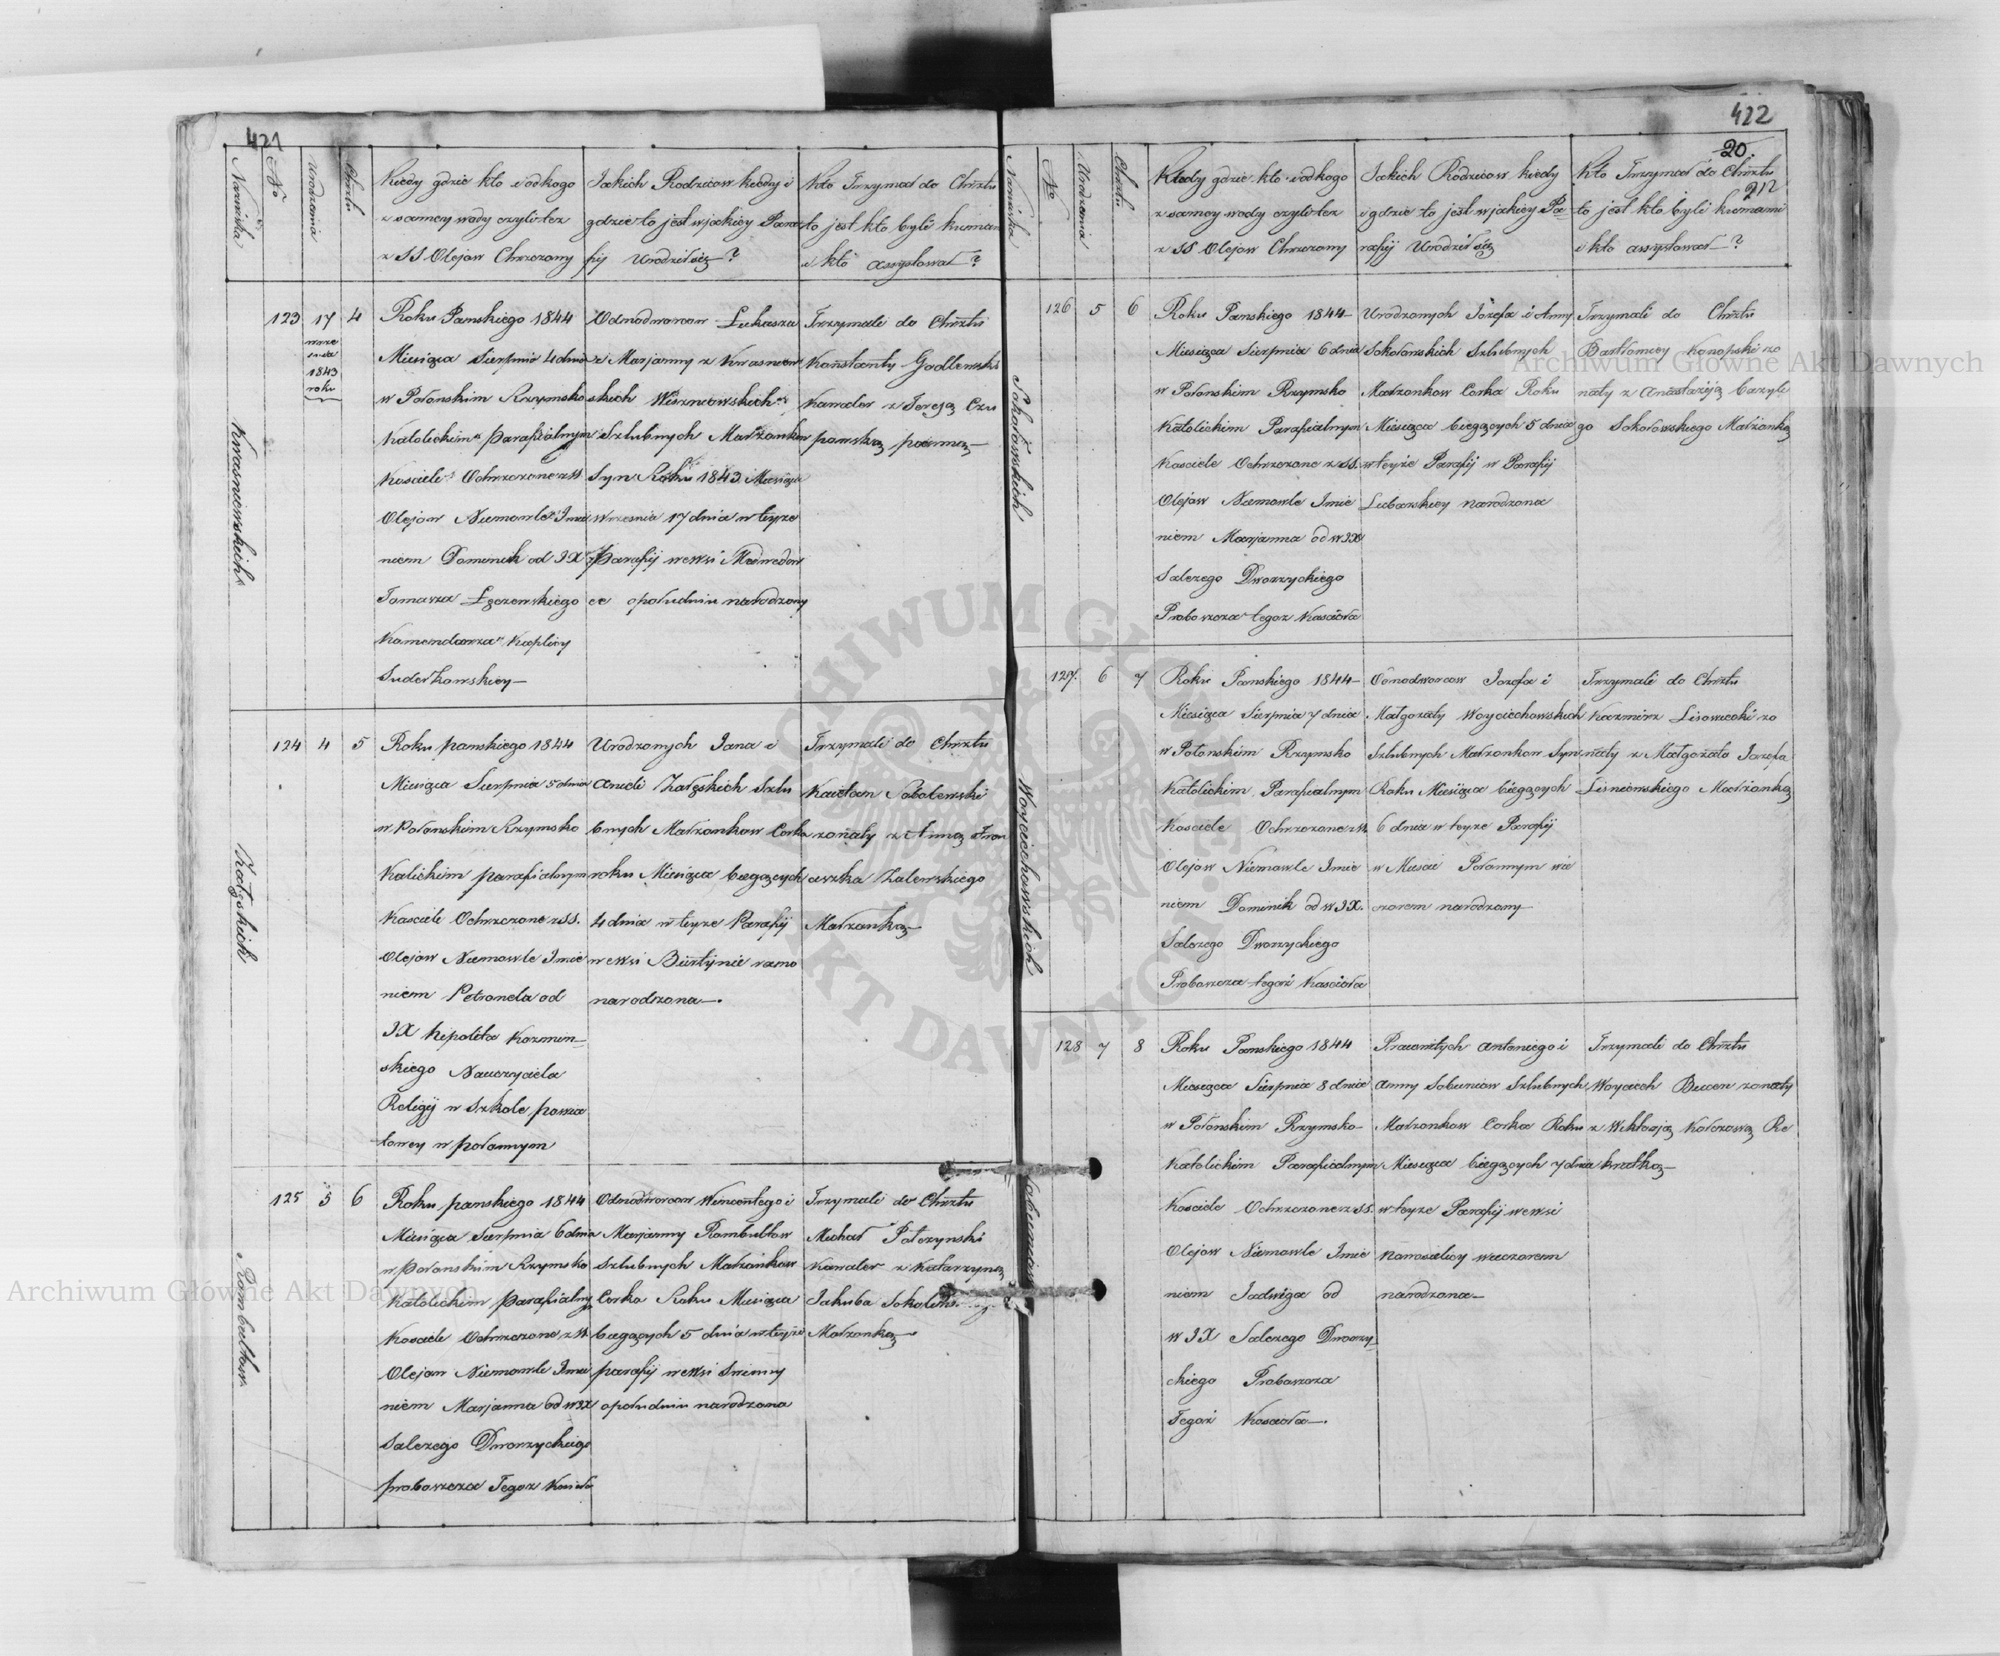 421
Nazwiska
No
Urodzenia
Chrztu
Kiedy gdzie kto i od kogo
z samey wody czyli tez
z SS Olejow Chrzczony
Jakich Rodzicow kiedy i
gdzie to jest w jakiey Para
fij Urodził się ?
Kto Trzymał do Chrztu
to jest kto byli kumami
i kto assystował ?
Krasnowskich
123
17
wrze
snia
1843
roku
4
Roku Panskiego 1844
Miesiąca Sierpnia 4 dnia
w Połonskim Rzymsko
Katolickim Parafialnym
Kosciele Ochrzczone z SS
Olejow Niemowle Imie
niem Dominik od JX
Tomasza Łęczewskiego
Komendarza Kaplicy
Suderkowskiey
Odnodworcow Łukasza
i Marjanny z Krasnow
skich Wiszniowskich
Szlubnych Małżonkow
Syn Roku 1843 Miesiąca
Wrzesnia 17 dnia w teyze
Parafij we wsi Miedwedow
ce opołudniu narodzony
Trzymali do Chrztu
Konstanty Godlewski
Kawaler z Teresą Czu
powską panną
Załęskich
124
4
5
Roku panskiego 1844
Miesiąca Sierpnia 5 dnia
w Połonskim Rzymsko
Kalickim parafialnym
Kosciele Ochrzczone z SS.
Olejow Niemowle Imie
niem Petronela od
JX Hipolita Kozmin
skiego Nauczyciela
Religij w Szkole powia
towey w połonnym
Urodzonych Jana i
Anieli Załęskich Szlu
bnych Małzonkow Corka
roku Miesiąca biegących
4 dnia w teyze Parafij
we wsi Burtynie rano
narodzona
Trzymali do Chrztu
Kaietan Sobolewski
zonaty z Anną Fran
ciszka Zalewskiego
Małzonką
Rombultow
125
5
6
Roku panskiego 1844
Miesiąca Sierpnia 6 dnia
w połonskim Rzymsko
Katolickim parafialny
Kosciele Ochrzczone z SS
Olejow Niemowle Imie
niem Marjanna od w JX
Salezego Dworzyckiego
proboszcza Tegoz Koscioła
Odnodworcow Wincentego i
Marjanny Rombultow
Szlubnych Małzonkow
Corka Roku Miesiąca
biegących 5 dnia w teyże
parafij we wsi
opołudniu narodzona
Trzymali do Chrztu
Michał Potczynski
Kawaler z Katarzyną
Jakuba
Małzonką
422
20.
212
Nazwiska
No
Urodzenia
Chrztu
Kiedy gdzie kto i od kogo
z samey wody czyli tez
z SS Olejow Chrzczony
Jakich Rodzicow kiedy
i gdzie to jest w jakiey Pa
rafij Urodził się
Kto Trzymał do Chrztu
to jest kto byli kumami
i kto assystował ?
Sokołowskich
126
5
6
Roku Panskiego 1844
Miesiąca Sierpnia 6 dnia
w Połonskim Rzymsko
Katolickim Parafialnym
Kosciele Ochrzczone z SS.
Olejow Niemowle Imie
niem Marjanna od w JX
Salezego Dworzyckiego
Proboszcza tegoz Koscioła
Urodzonych Józefa i Anny
Sokołowskich Szlubnych
Małzonkow Corka Roku
Miesiąca biegących 5 dnia
w teyże Parafij w Parafij
Lubarskiey narodzona
Trzymali do Chrztu
Bartłomiey Konopski zo
naty z Anastazją Bazyle
go Sokołowskiego Małzonką
Woyciechowskich
127.
6
7
Roku Panskiego 1844
Miesiąca Sierpnia 7 dnia
w Połonskim Rzymsko
Katolickim Parafialnym
Kosciele Ochrzczone z SS.
Olejow Niemowle Imie
niem Dominik od w JX.
Salezego Dworzyckiego
Proboszcza tegoż Koscioła
Odnodworcow Jozefa i
Małgorzaty Woyciechowskich
Szlubnych Małzonkow Syn
Roku Miesiąca biegących
6 dnia w teyze Parafij
w Miescie Połonnym wie
czorem narodzony
Trzymali do Chrztu
Kazmierz Lisowecki zo
naty z Małgorzato Jozefa
Lisniewskiego Małżonką
Sobuniow
128
7
8
Roku Panskiego 1844
Miesiąca Sierpnia 8 dnia
w Połonskim Rzymsko
Katolickim Parafialnym
Kosciele Ochrzczone z SS.
Olejow Niemowle Imie
niem Jadwiga od
w JX Salezego Dworzy
ckiego Proboszcza
Tegoż Koscioła
Pracowitych Antoniego i
Anny Sobuniow Szlubnych
Małzonkow Corka Roku
Miesiąca biegących 7 dnia
w teyze Parafij we wsi
Nowosielicy wieczorem
narodzona
Trzymali do Chrztu
Woyciech Bucen zonaty
z Wiktorją Kołczową Re
krutką
Archiwum Główne Akt Dawnych
Archiwum Główne Akt Dawnych
ARCHIWUM GŁÓWNE AKT DAWNYCH